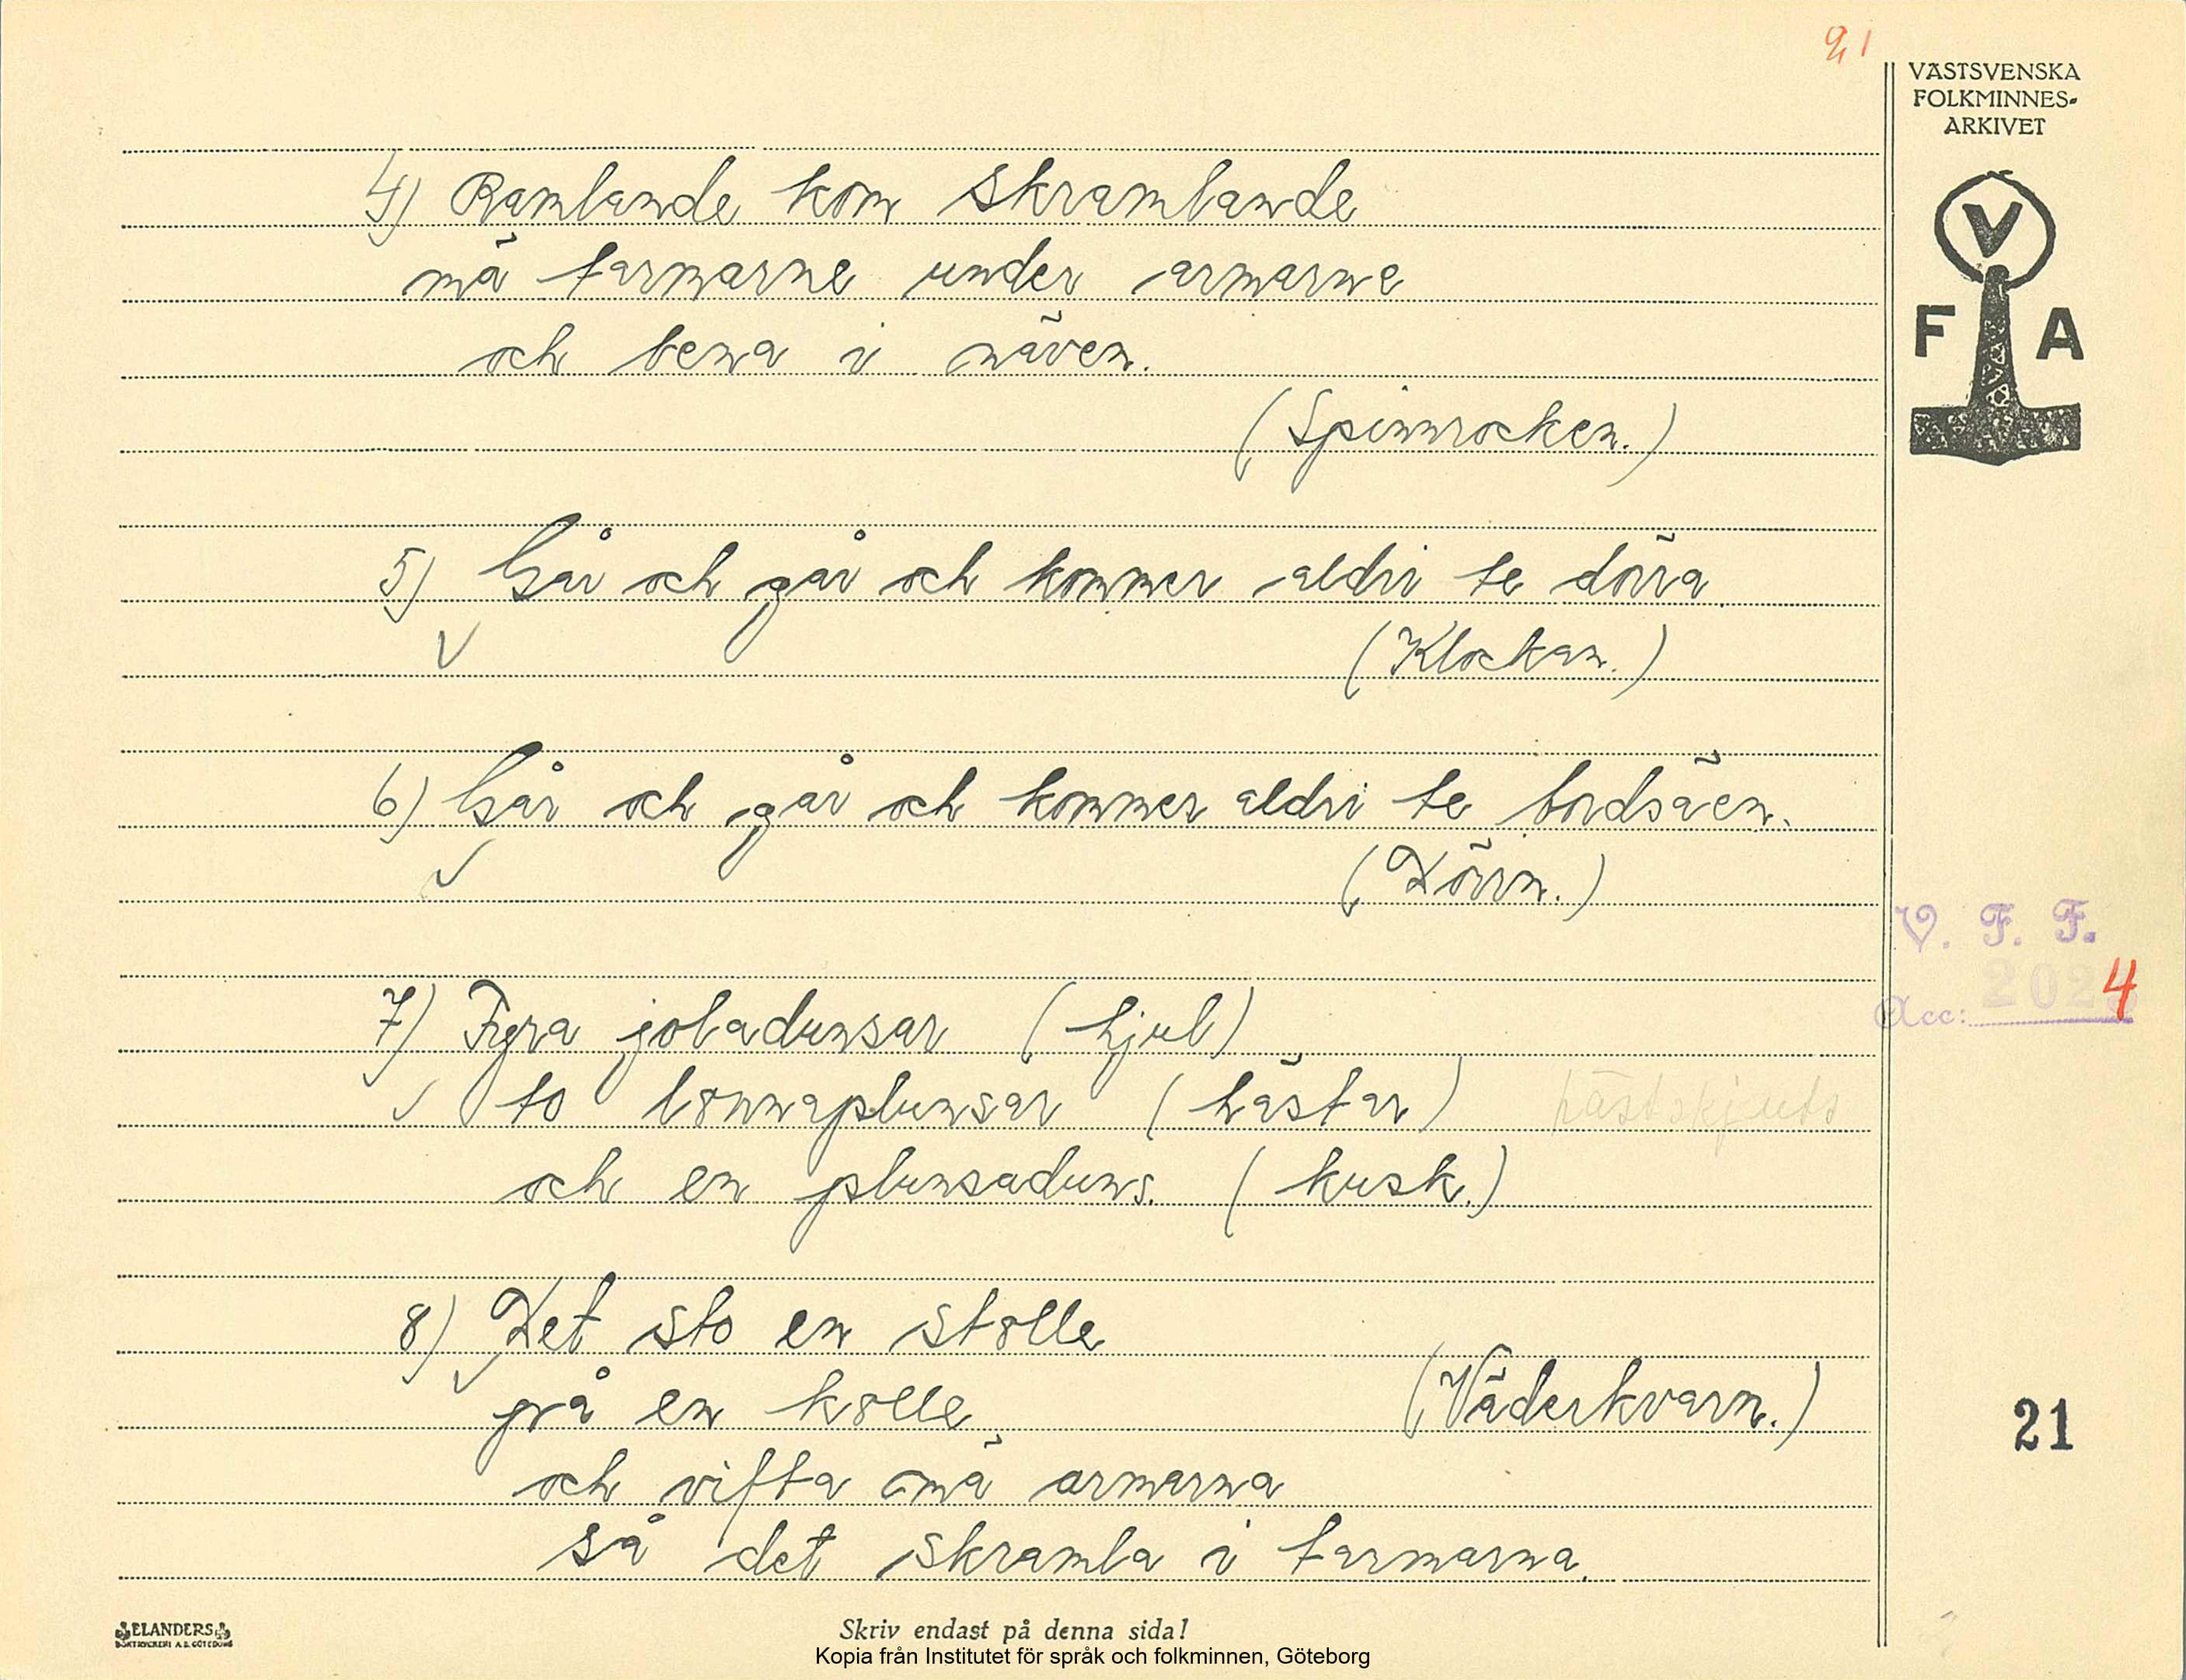 21
VÄSTSVENSKA
FOLKMINNES-
ARKIVET
V
F A
4) Ramlande kom skramlande
mä tarmarne under armarne
och bena i näven.
(Spinnrocken.)
5) Går och går och kommer aldri te dörra
(Klockan.)
6) Går och går och kommer aldri te bordsäen.
(Dörrn.)
V. F. F.
Acc: 2024
7) Fyra joladunsar (hjul)
to lonnaplunsar (hästar) hästskjuts
och en plunsaduns. (kusk.)
8) Det sto en stolle
på en kolle (Väderkvarn.)
och vifta mä armarna
så det skramla i tarmarna.
21
ELANDERS
BOKTRYCKERI A.B. GÖTEBORG
Skriv endast på denna sida!
Kopia från Institutet för språk och folkminnen, Göteborg